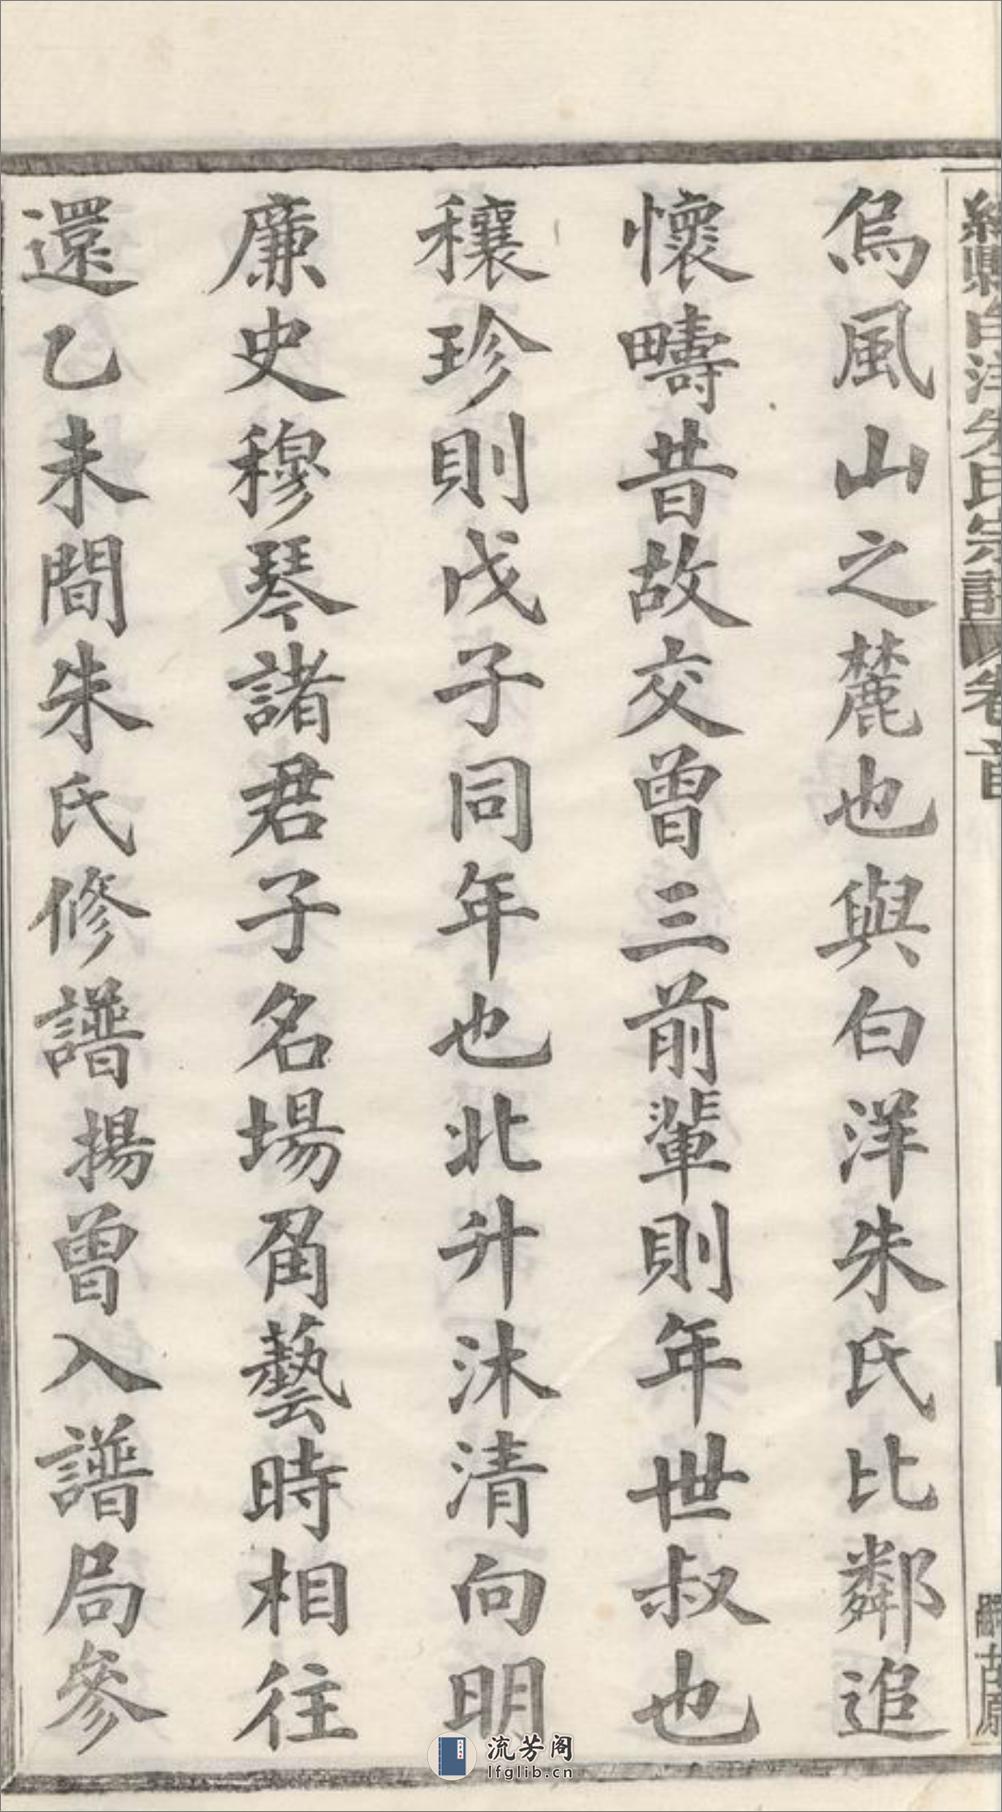 白洋朱氏宗譜
卷首
烏風山之麓也與白洋朱氏比鄰追
懷疇昔故交曾三前輩則年世叔也
穰珍則戊子同年也北升沐清向明
廉史穆琴諸君子名場角藝時相往
還乙未間朱氏修譜揚曾入譜局參
流芳阁
lfglib.cn